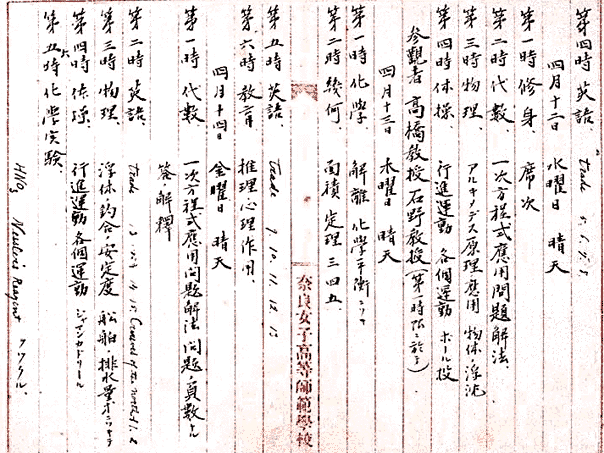 第四時 英語、 Trade 5, 6,
四月十二日 水曜日 晴天
第一時 修身、 席次
第二時 代数、 一次方程式應用問題解法、
第三時 物理、 アルキメデス原理應用 物体ノ浮沈
第四時 体操、 行進運動 各個運動 ボール投
参観者 高橋教授 石野教授(第一時限ニ於テ)
四月十三日 木曜日 晴天
第一時 化學、 解離 化學平衡
第二時 幾何、 面積、定理 三 四 五、
奈良女子高等師範學校
第五時 英語、 Trade 9, 10, 11, 12, 13
第六時 教育 推理心理作用、
四月十四日 金曜日 晴天
第一時 代数、 一次方程式應用問題解法 問題ノ負数
答ノ解釋
第二時 英語、 Trade
第三時 物理、 浮体ノ釣合ノ安定度 船舶ノ排水量
第四時 体操、 行進運動 各個運動
第五六時 化學実験、 HNO3 Nessler's Reagent